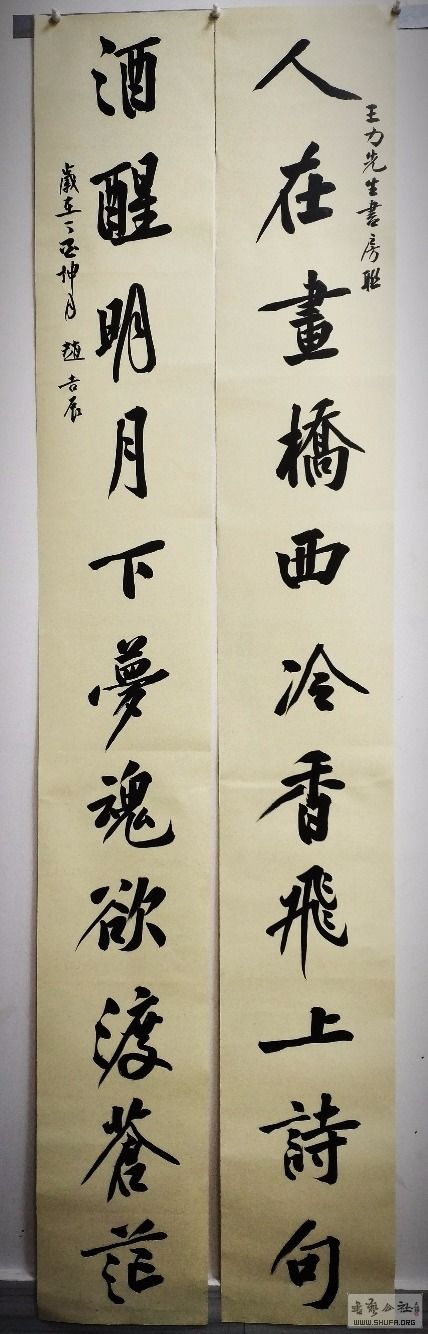 王力先生書房聯
人在畫橋西冷香飛上詩句
酒醒明月下夢魂欲渡蒼茫
歲在丁酉坤月 趙吉辰
書藝公社
WWW.SHUFA.ORG